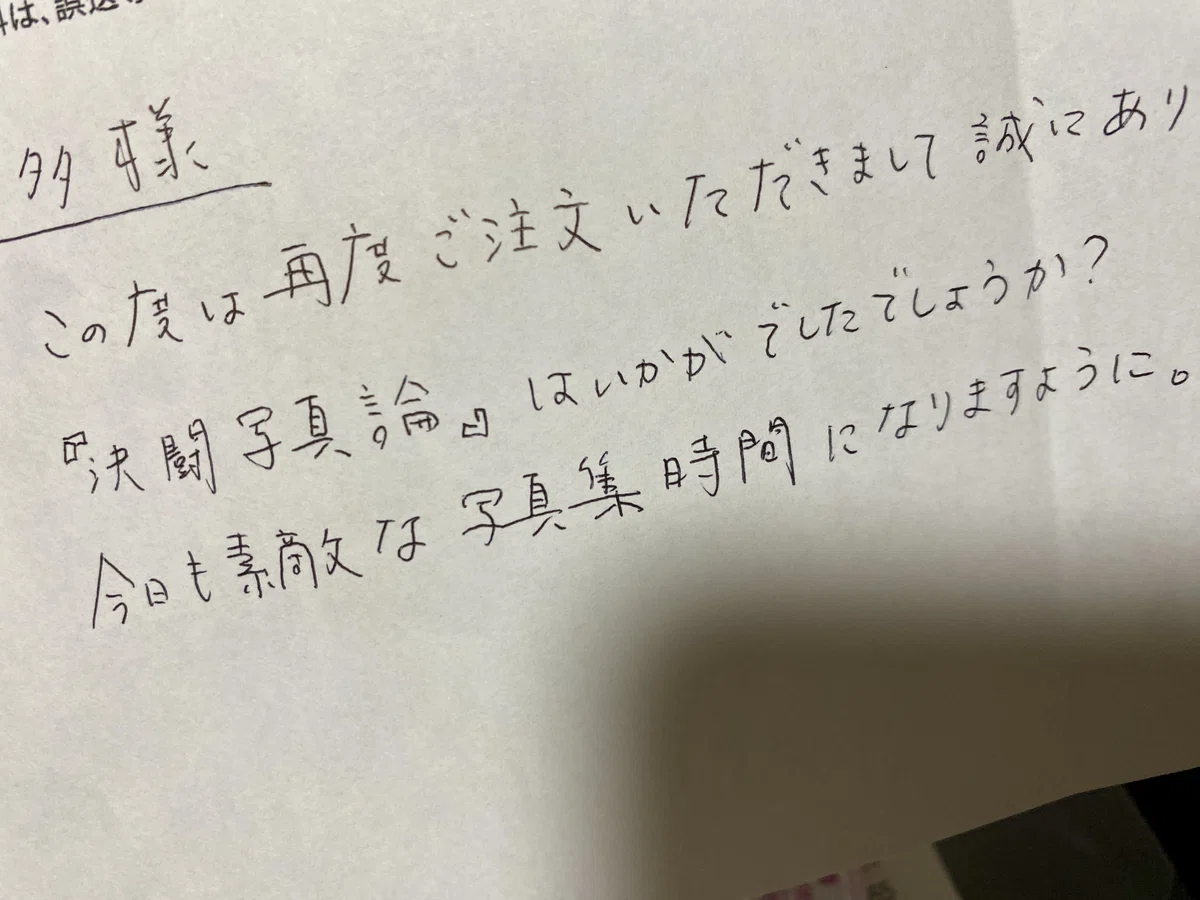 は、誤送
多 様
この度は再度ご注文いただきまして誠にあり
『決闘写真論』はいかがでしたでしょうか?
今日も素敵な写真集時間になりますように。